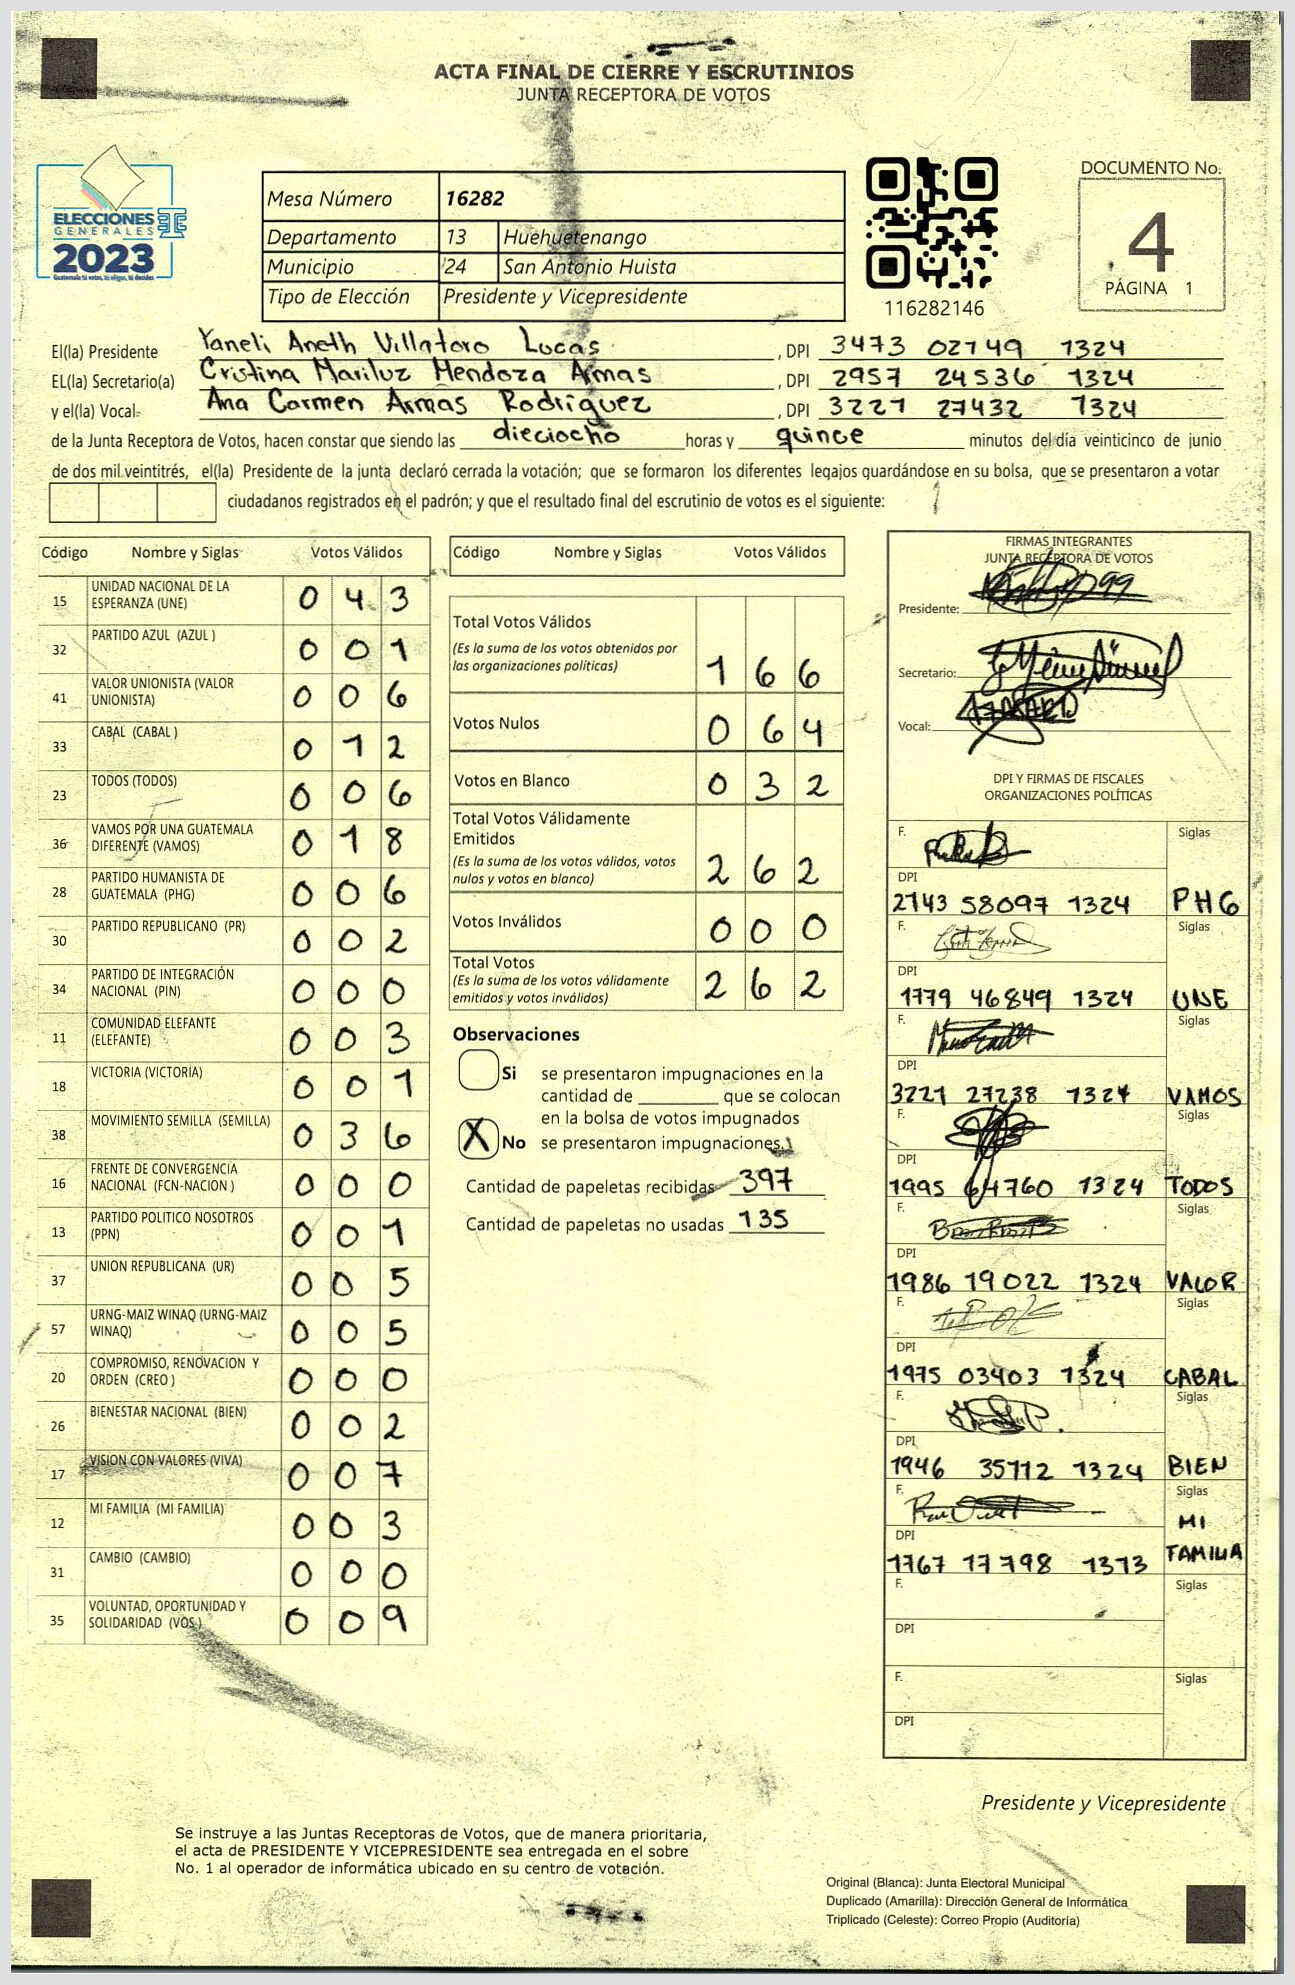 ACTA FINAL DE CIERRE Y ESCRUTINIOS
JUNTA RECEPTORA DE VOTOS
ELECCIONES
GENERALES
2023
Guatemala tú votas, tú eliges, tú decides
Mesa Número 16282
Departamento 13 Huehuetenango
Municipio 24 San Antonio Huista
Tipo de Elección Presidente y Vicepresidente
116282146
DOCUMENTO No.
4
PÁGINA 1
El(la) Presidente Yaneli Aneth Villatoro Lucas , DPI 3473 02749 1324
EL(la) Secretario(a) Cristina Mariluz Mendoza Armas , DPI 2957 24536 1324
y el(la) Vocal. Ana Carmen Armas Rodríguez , DPI 3227 27432 1324
de la Junta Receptora de Votos, hacen constar que siendo las dieciocho horas y quince minutos del día veinticinco de junio
de dos mil veintitrés, el(la) Presidente de la junta declaró cerrada la votación; que se formaron los diferentes legajos guardándose en su bolsa, que se presentaron a votar
ciudadanos registrados en el padrón; y que el resultado final del escrutinio de votos es el siguiente:
Código Nombre y Siglas Votos Válidos
15 UNIDAD NACIONAL DE LA ESPERANZA (UNE) 0 4 3
32 PARTIDO AZUL (AZUL ) 0 0 1
41 VALOR UNIONISTA (VALOR UNIONISTA) 0 0 6
33 CABAL (CABAL ) 0 1 2
23 TODOS (TODOS) 0 0 6
36 VAMOS POR UNA GUATEMALA DIFERENTE (VAMOS) 0 1 8
28 PARTIDO HUMANISTA DE GUATEMALA (PHG) 0 0 6
30 PARTIDO REPUBLICANO (PR) 0 0 2
34 PARTIDO DE INTEGRACIÓN NACIONAL (PIN) 0 0 0
11 COMUNIDAD ELEFANTE (ELEFANTE) 0 0 3
18 VICTORIA (VICTORIA) 0 0 1
38 MOVIMIENTO SEMILLA (SEMILLA) 0 3 6
16 FRENTE DE CONVERGENCIA NACIONAL (FCN-NACION ) 0 0 0
13 PARTIDO POLITICO NOSOTROS (PPN) 0 0 1
37 UNION REPUBLICANA (UR) 0 0 5
57 URNG-MAIZ WINAQ (URNG-MAIZ WINAQ) 0 0 5
20 COMPROMISO, RENOVACION Y ORDEN (CREO ) 0 0 0
26 BIENESTAR NACIONAL (BIEN) 0 0 2
17 VISION CON VALORES (VIVA) 0 0 7
12 MI FAMILIA (MI FAMILIA) 0 0 3
31 CAMBIO (CAMBIO) 0 0 0
35 VOLUNTAD, OPORTUNIDAD Y SOLIDARIDAD (VOS ) 0 0 9
Código Nombre y Siglas Votos Válidos
Total Votos Válidos
(Es la suma de los votos obtenidos por
las organizaciones políticas) 1 6 6
Votos Nulos 0 6 4
Votos en Blanco 0 3 2
Total Votos Válidamente
Emitidos
(Es la suma de los votos válidos, votos
nulos y votos en blanco) 2 6 2
Votos Inválidos 0 0 0
Total Votos
(Es la suma de los votos válidamente
emitidos y votos inválidos) 2 6 2
Observaciones
Si se presentaron impugnaciones en la
cantidad de ________ que se colocan
en la bolsa de votos impugnados
X No se presentaron impugnaciones.
Cantidad de papeletas recibidas 397
Cantidad de papeletas no usadas 135
FIRMAS INTEGRANTES
JUNTA RECEPTORA DE VOTOS
Presidente:
Secretario:
Vocal:
DPI Y FIRMAS DE FISCALES
ORGANIZACIONES POLÍTICAS
F. Siglas
DPI
2143 58097 1324 PHG
F. Siglas
DPI
1779 46849 1324 UNE
F. Siglas
DPI
3221 27238 1324 VAMOS
F. Siglas
DPI
1995 64760 1324 TODOS
F. Siglas
DPI
1986 19022 1324 VALOR
F. Siglas
DPI
1975 03403 1324 CABAL
F. Siglas
DPI
1946 35112 1324 BIEN
F. Siglas
MI
DPI
1767 17798 1313 FAMILIA
F. Siglas
DPI
F. Siglas
DPI
Presidente y Vicepresidente
Se instruye a las Juntas Receptoras de Votos, que de manera prioritaria,
el acta de PRESIDENTE Y VICEPRESIDENTE sea entregada en el sobre
No. 1 al operador de informática ubicado en su centro de votación.
Original (Blanca): Junta Electoral Municipal
Duplicado (Amarilla): Dirección General de Informática
Triplicado (Celeste): Correo Propio (Auditoría)